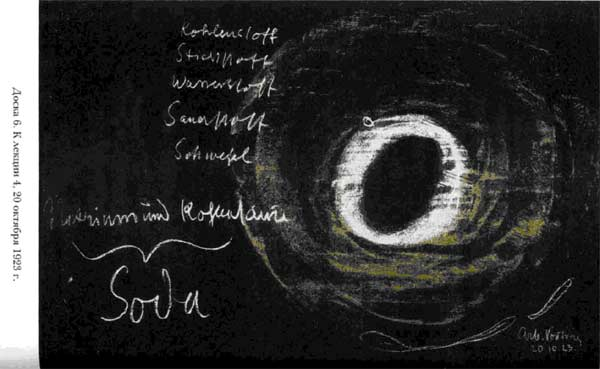 Доска 6. К лекции 4, 20 октября 1923 г.
Kohlenstoff
Stickstoff
Wasserstoff
Sauerstoff
Schwefel
Natrium und Kohlensäure
Soda
20.10.23.